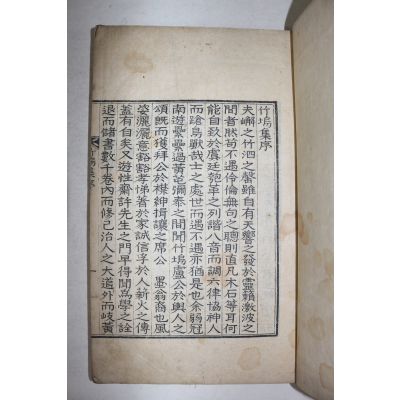 竹塢集序
夫嶰之竹泗之磬雖自有天響之發於靈籟激波之
間者然苟不遇伶倫無句之聰則直凡木石等耳何
能自致於虞廷匏革之列諧八音而調六律協神人
而蹌鳥獸哉士之處世而遇不遇亦猶是也余弱冠
南遊纍纍過黃芚彌泰之間聞竹塢盧公於輿人之
頌旣而獲拜公於楳紳揖讓之席公 墨翁裔也風
姿灑灑意豁豁孝悌著於家誠信孚於人薪火之傳
蓋有自矣又遊性齋許先生之門早得聞爲學之詮
退而儲書數千卷內而修己治人之大道外而岐黃
竹塢集序
一